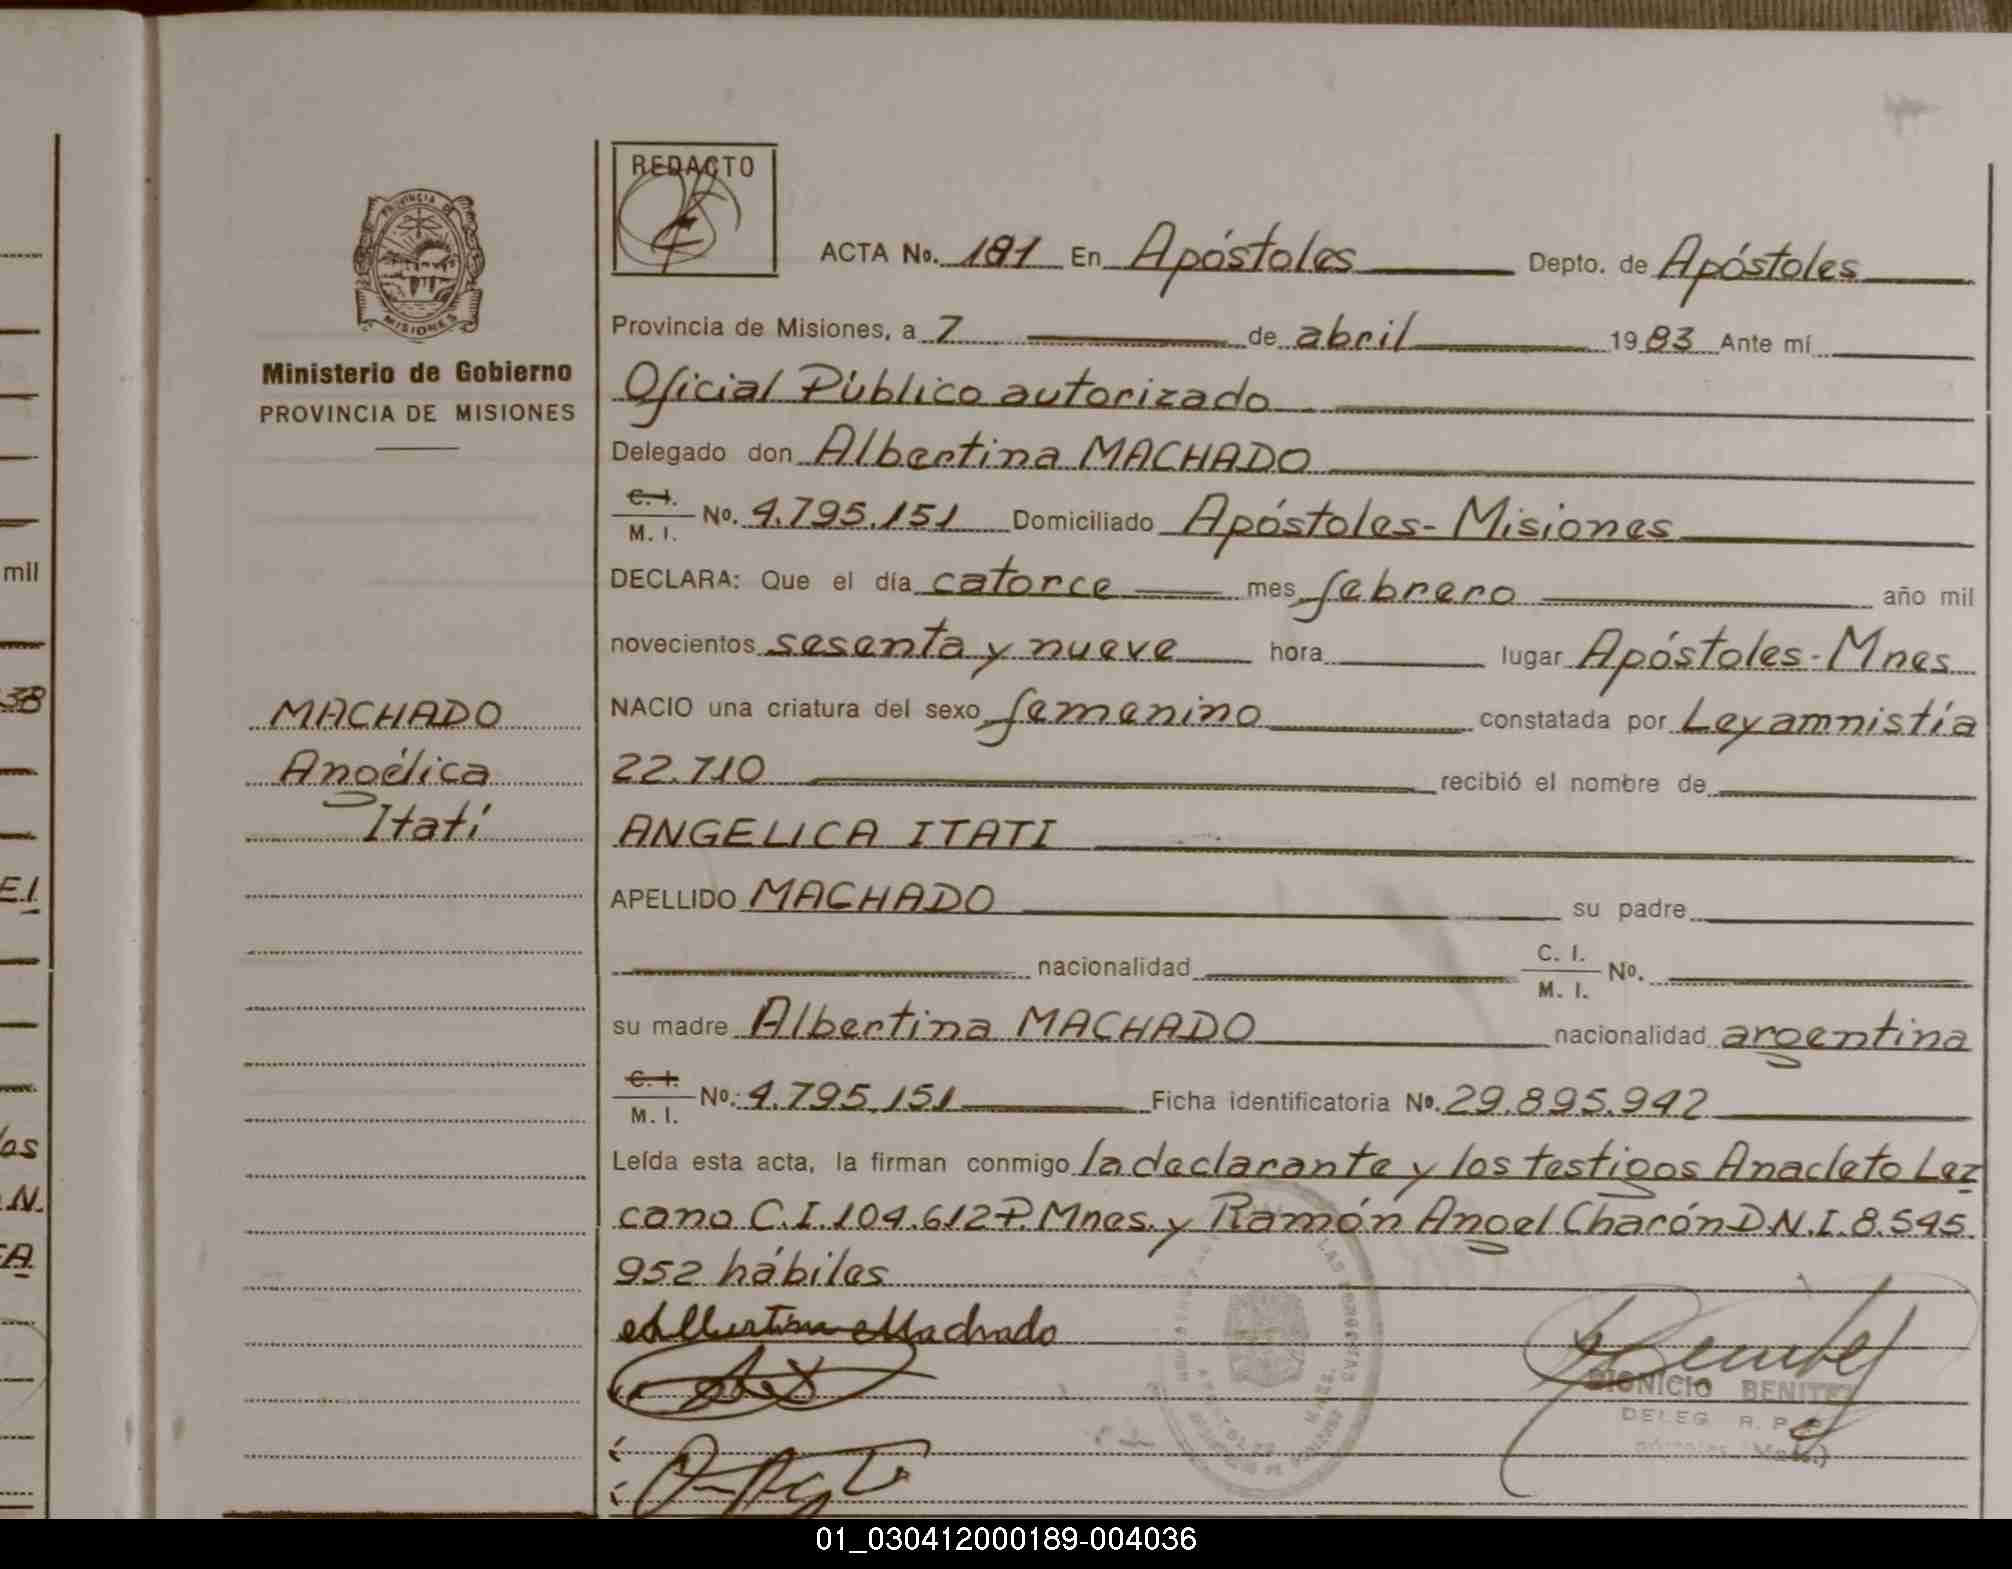 mil
38
E.I.
los
N.
A
PROVINCIA DE
MISIONES
Ministerio de Gobierno
PROVINCIA DE MISIONES
MACHADO
Angélica
Itatí
REDACTO
ACTA No. 181 En Apóstoles Depto. de Apóstoles
Provincia de Misiones, a 7 de abril 1983 Ante mí
Oficial Público autorizado
Delegado don Albertina MACHADO
C. I. / M. I. No. 4.795.151 Domiciliado Apóstoles - Misiones
DECLARA: Que el día catorce mes febrero año mil
novecientos sesenta y nueve hora lugar Apóstoles - Mnes
NACIO una criatura del sexo femenino constatada por Ley amnistía
22.710 recibió el nombre de
ANGELICA ITATI
APELLIDO MACHADO su padre
nacionalidad C. I. / M. I. No.
su madre Albertina MACHADO nacionalidad argentina
C. I. / M. I. No. 4.795.151 Ficha identificatoria No. 29.895.942
Leída esta acta, la firman conmigo la declarante y los testigos Anacleto Lez
cano C.I. 104.612 P. Mnes. y Ramón Angel Chacón D.N.I. 8.545.
952 hábiles
Albertina Machado
DIONICIO BENITEZ
DELEG R. P.
01_030412000189-004036